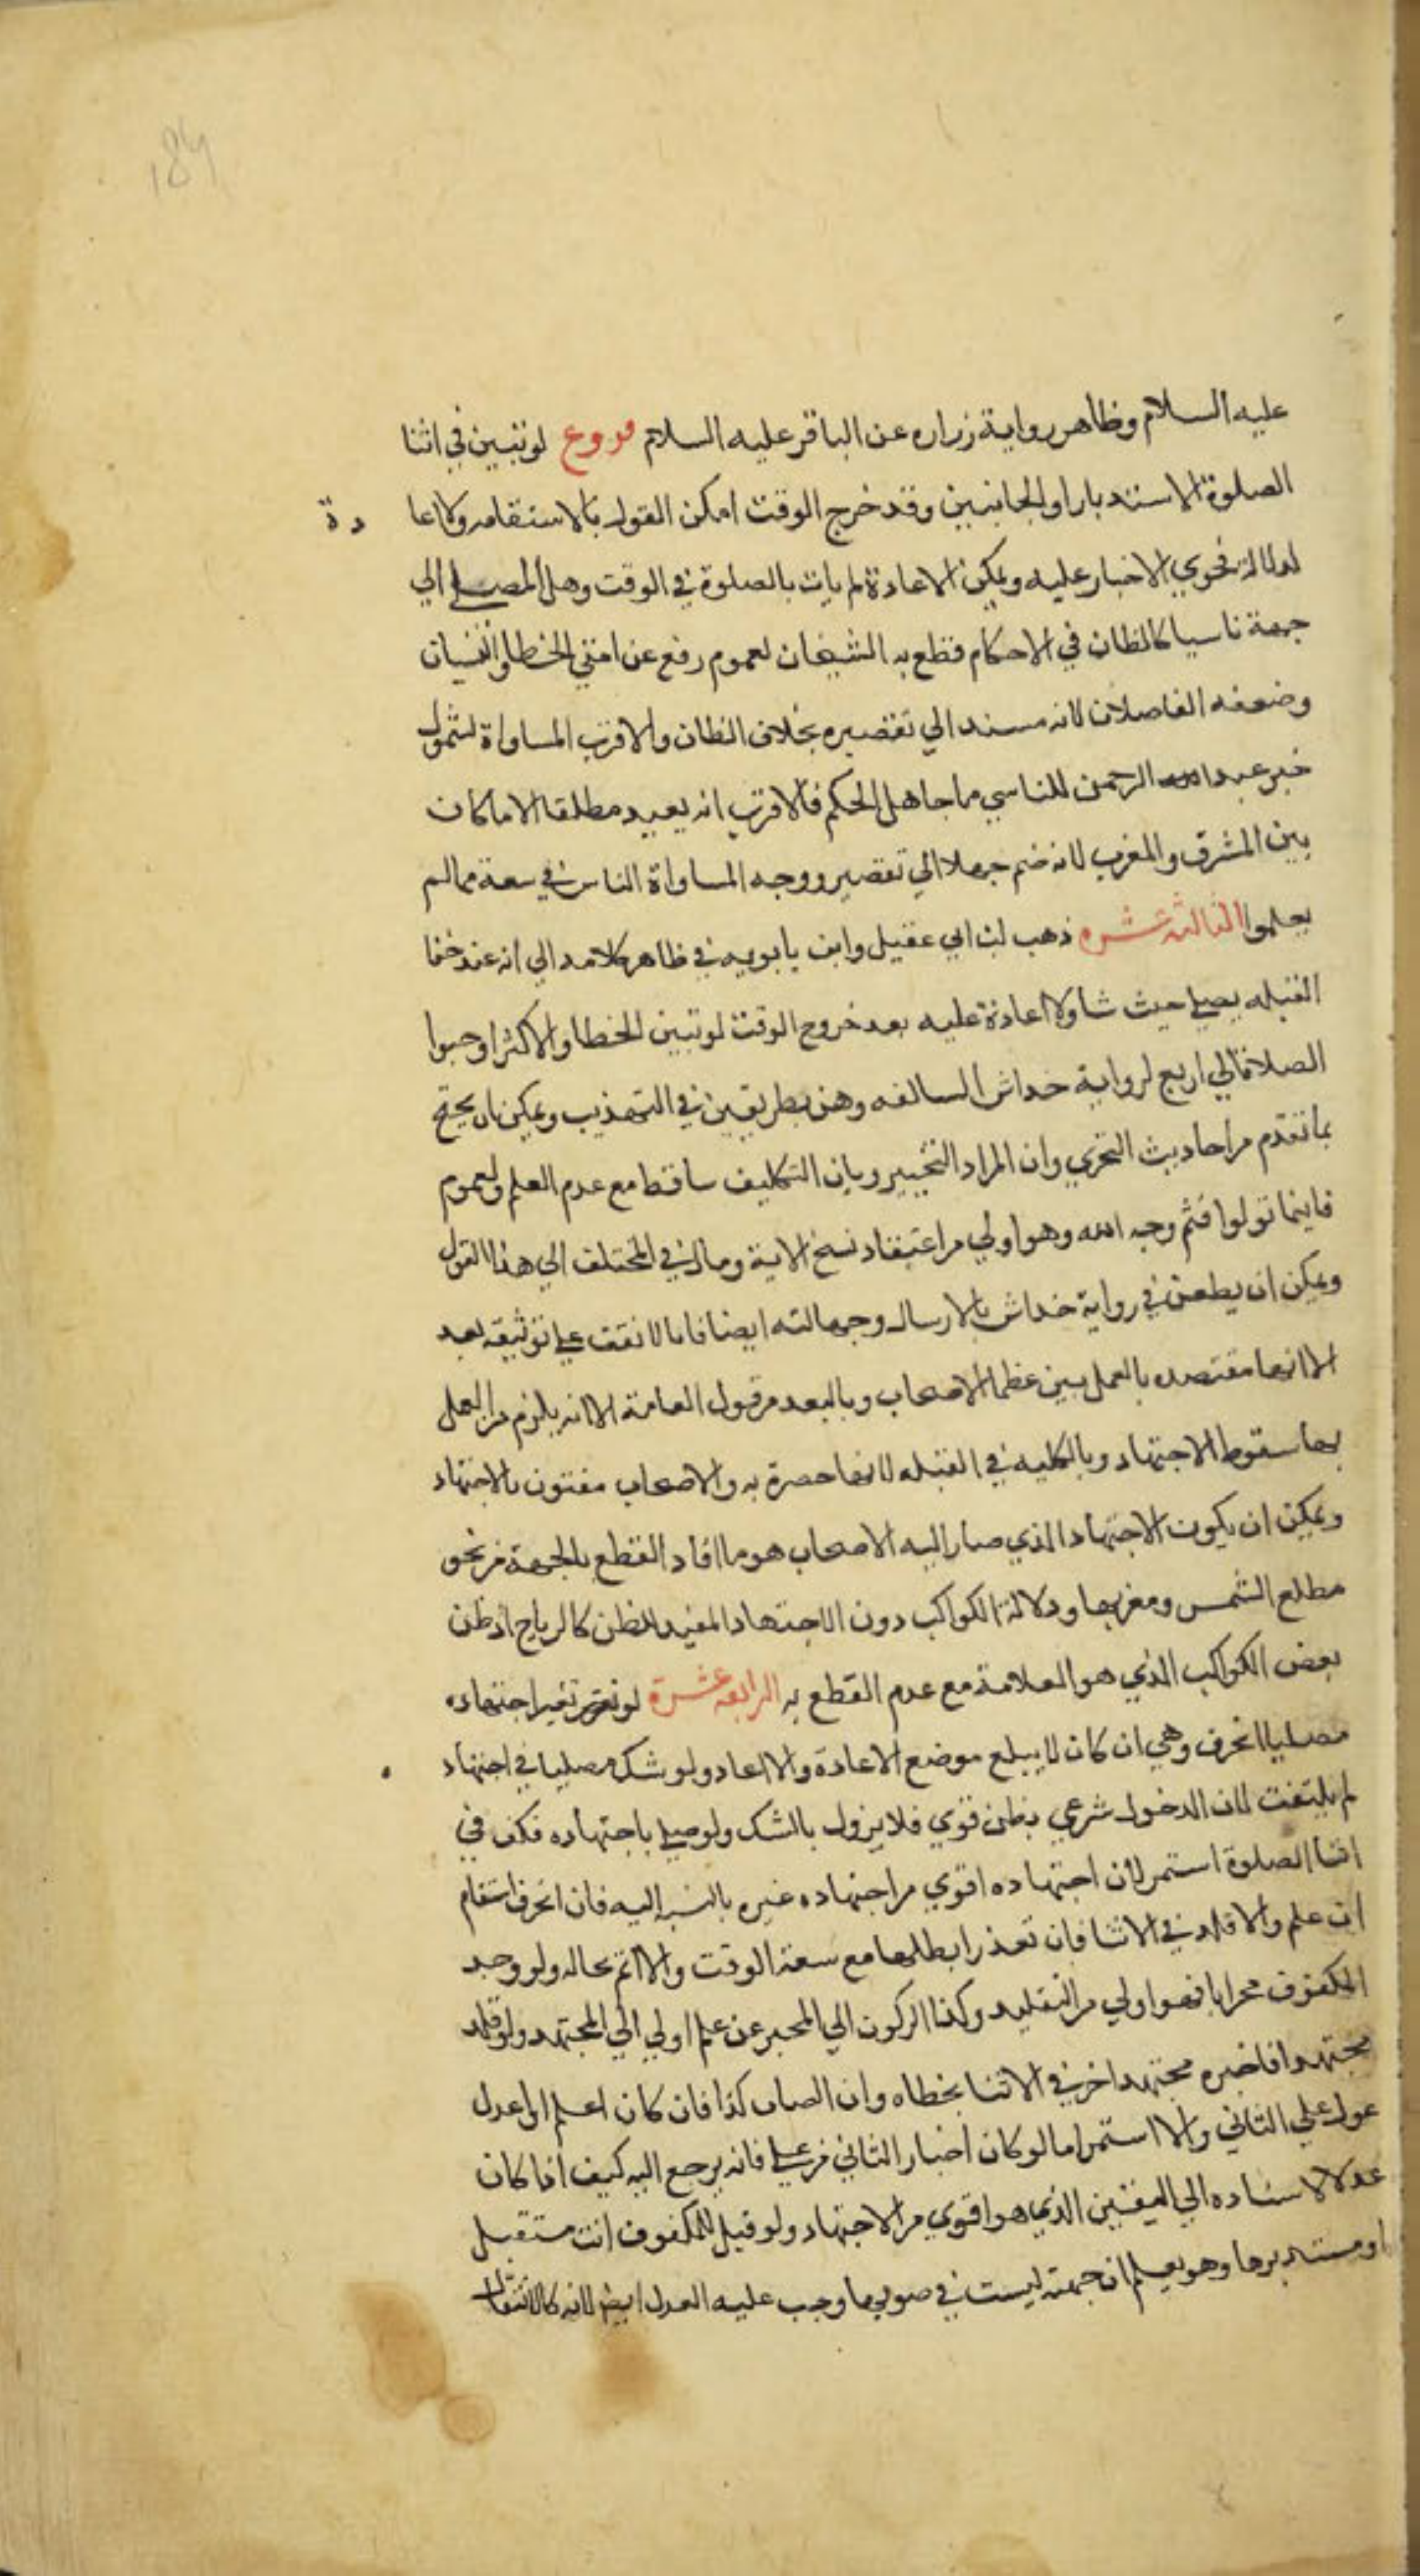 184
عليه السلام وظاهر رواية زراره عن الباقر عليه السلام فروع لو تبين في اثنا
الصلوة الاستدبار او الجانبين وقد خرج الوقت امكن القول بالاستقامه ولا اعا دة
لدلالة فحوي الاخبار عليه ويمكن الاعادة لم يات بالصلوة في الوقت وهل المصلي الي
جهة ناسيا كالظان في الاحكام قطع به الشيخان لعموم رفع عن امتي الخطا والنسيان
وضعفه الفاضلان لانه مسند الي تقصيره بخلاف الظان والاقرب المساواة لشمول
خبر عبد الرحمن للناسي ما جاهل الحكم فالاقرب انه يعيد مطلقا الا ما كان
بين المشرق والمغرب لانه ضم جهلا الي تقصير ووجه المساواة الناس في سعة مما لم
يعلموا الثالثة عشره ذهب ابن ابي عقيل وابن بابويه في ظاهر كلامه الي انه عند خفا
القبله يصلي حيث شا ولا اعادة عليه بعد خروج الوقت لو تبين الخطا والاكثر اوجبوا
الصلاة الي اربع لرواية خداش السالفه وهي بطريقين في التهذيب ويمكن ان يحتج
بما تقدم من احاديث التحري وان المراد التخيير وبان التكليف ساقط مع عدم العلم ولعموم
فاينما تولوا فثم وجه الله وهو اولي من اعتقاد نسخ الاية ومال في المختلف الي هذا القول
ويمكن ان يطعن في رواية خداش بالارسال وجهالته ايضا فانا لا نقف علي توثيقه بعد
الا انها معتضده بالعمل بين عظما الاصحاب وبالبعد من قول العامة الا انه يلزم من العمل
بها سقوط الاجتهاد وبالكليه في القبله لانها حصرة به والاصحاب مفتون بالاجتهاد
ويمكن ان يكون الاجتهاد الذي صار اليه الاصحاب هو ما افاد القطع بالجهة من نحو
مطلع الشمس ومغربها ودلالة الكواكب دون الاجتهاد المفيد للظن كالرياح او ظن
بعض الكواكب الذي هو العلامة مع عدم القطع به الرابعه عشرة لو تغير اجتهاده
مصليا انحرف وهي ان كان لا يبلع موضع الاعادة والا اعاد ولو شك مصليا في اجتهاد
لم يلتفت لان الدخول شرعي بظن قوي فلا يزول بالشك ولو صلي باجتهاده فكف في
اثنا الصلوة استمر لان اجتهاده اقوي من اجتهاده غيره بالنسبه اليه فان انحرف استقام
ان علم والا قلد في الاثنا فان تعذر ابطلها مع سعة الوقت والا اتم بحاله ولو وجد
المكفوف محرابا فهو اولي من التقليد وكذا الركون الي المخبر عن علم اولي الي المجتهد ولو قلد
مجتهدا فاخبره مجتهد اخر في الاثنا بخطاه وان الصاب كذا فان كان اعلم او اعدل
عول علي الثاني والا استمر اما لو كان اخبار الثاني عن علم فانه يرجع اليه كيف اذا كان
عدلا لاسناده الي اليقين الذي هو اقوي من الاجتهاد ولو قيل للمكفوف انت مستقبل
او مستدبرها وهو يعلم ان جهته ليست في صوبها وجب عليه العدل ايضا لانه كالانتقال